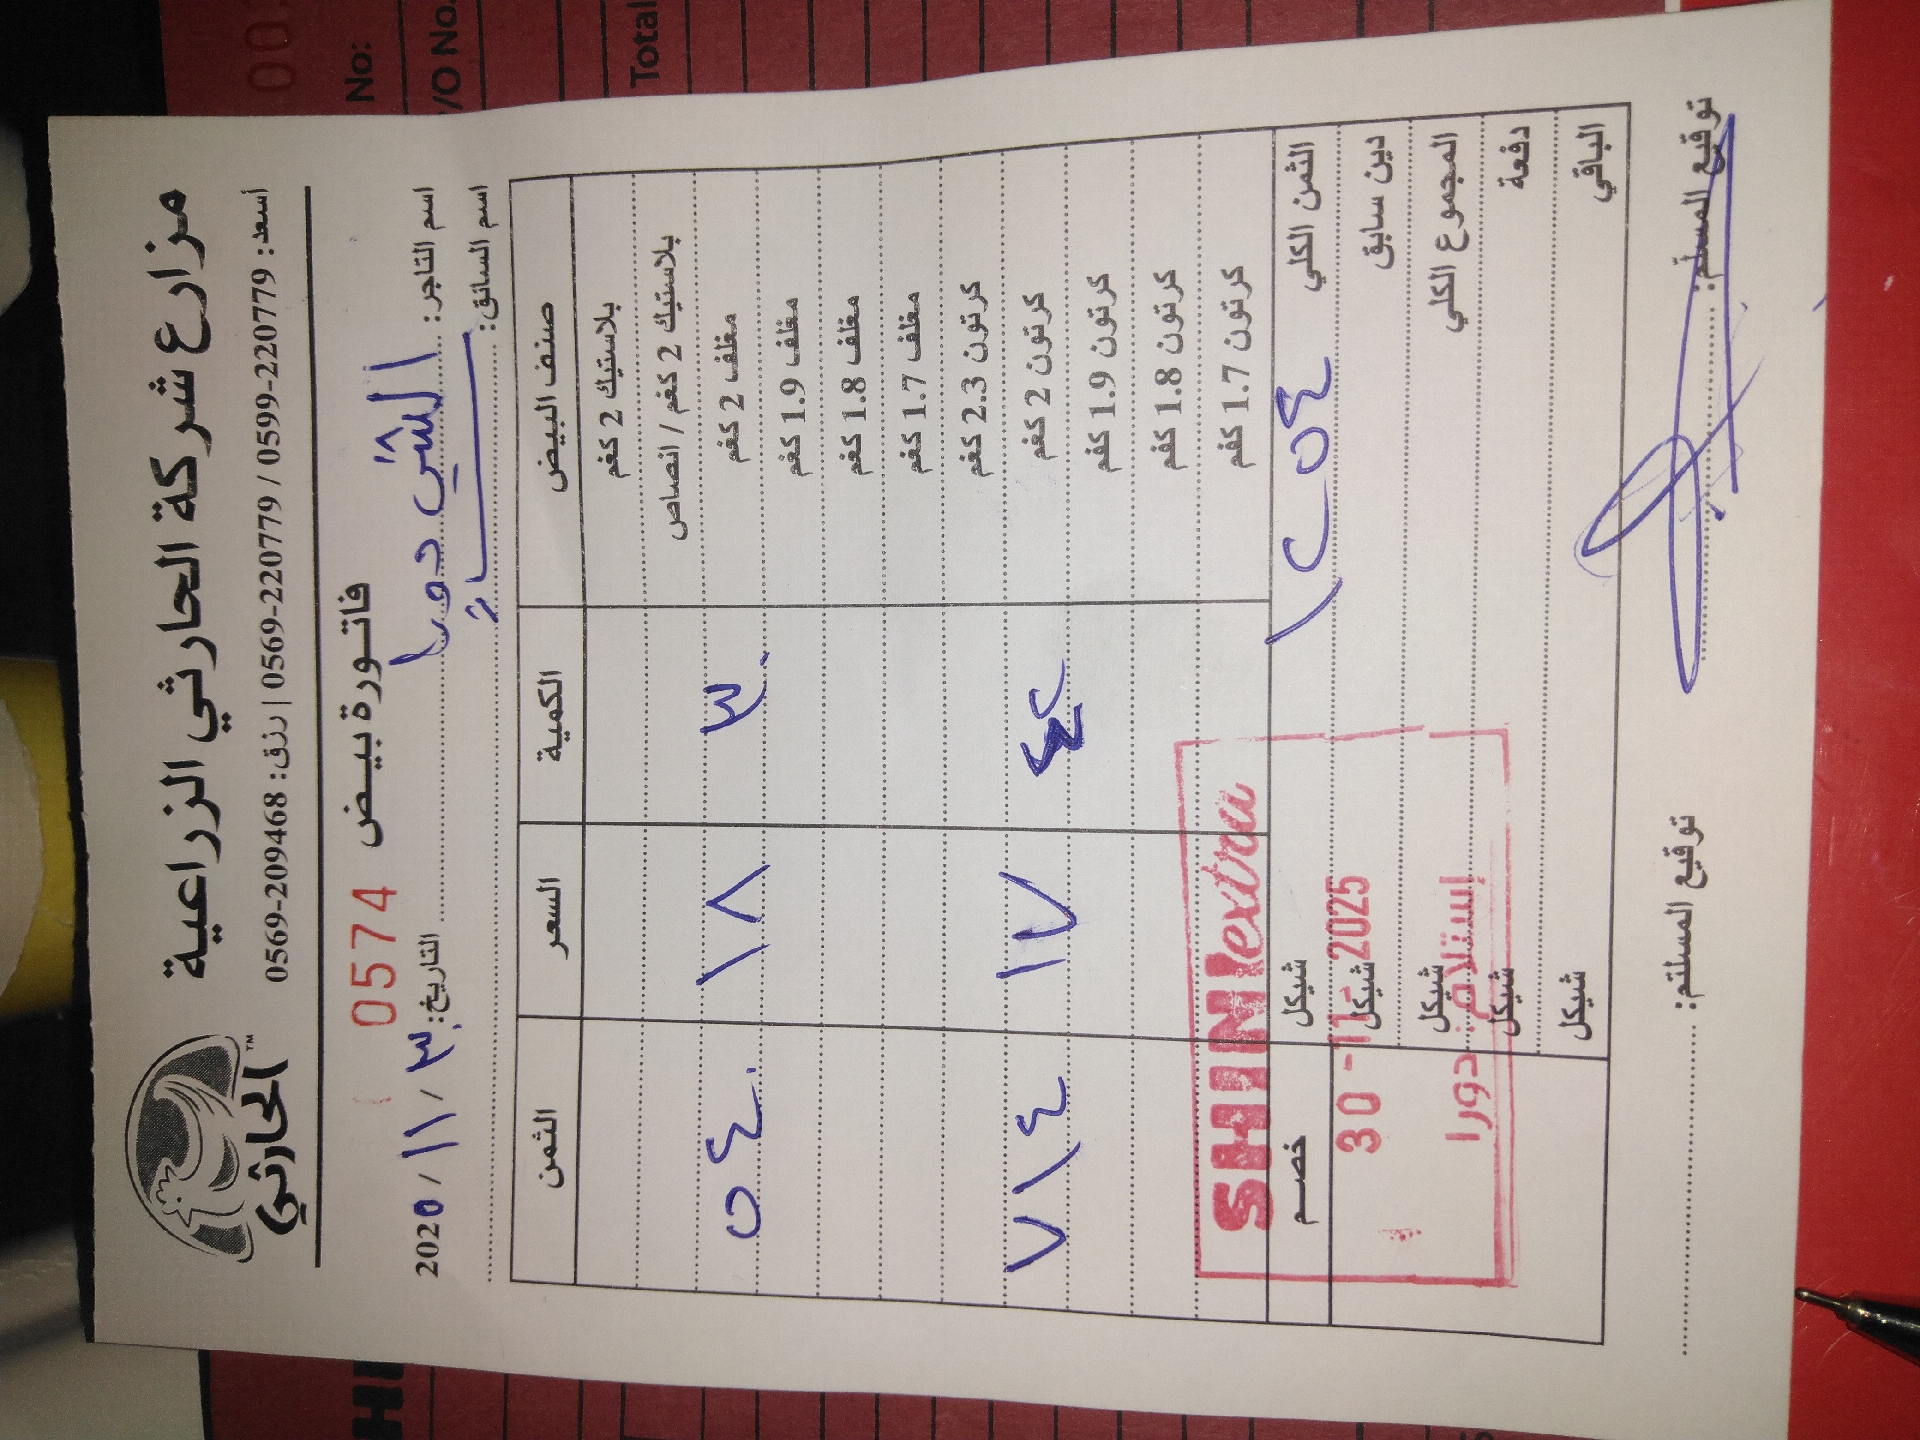 مزارع شركة الحارثي الزراعية
أسعد: 0599-220779 / 0569-220779 | رزق: 0569-209468
الحارثي ™
فاتورة بيض
0574
اسم التاجر: الشني دورا
التاريخ: ٣٠ / ١١ / 202٥
اسم السائق:
صنف البيض الكمية السعر الثمن
بلاستيك 2 كغم
بلاستيك 2 كغم / انصاص
مغلف 2 كغم ٣٠ ١٨ ٥٤٠
مغلف 1.9 كغم
مغلف 1.8 كغم
مغلف 1.7 كغم
كرتون 2.3 كغم
كرتون 2 كغم ٤٢ ١٧ ٧١٤
كرتون 1.9 كغم
كرتون 1.8 كغم
كرتون 1.7 كغم
الثمن الكلي ١٢٥٤ شيكل خصم
دين سابق شيكل
المجموع الكلي شيكل
دفعة شيكل
الباقي شيكل
SHINI extra
30 -11- 2025
إستلام: دورا
توقيع المسلّم:
توقيع المستلم:
No:
/O No.
Total
00